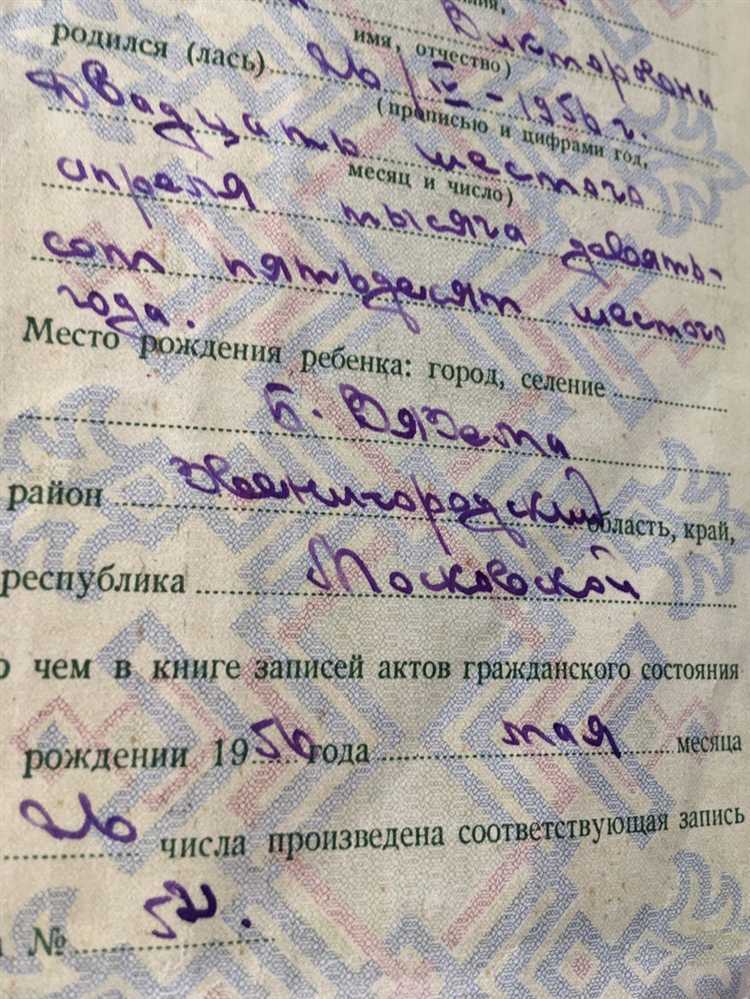 Викторовна
имя, отчество)
родился (лась) 26/IV-1956 г.
(прописью и цифрами год,
Двадцать шестого
месяц и число)
апреля тысяча девять-
сот пятьдесят шестого
года.
Место рождения ребенка: город, селение
Б. Вязема
район Звенигородский область, край,
республика Московской
о чем в книге записей актов гражданского состояния
рождении 1956 года мая месяца
26 числа произведена соответствующая запись
№